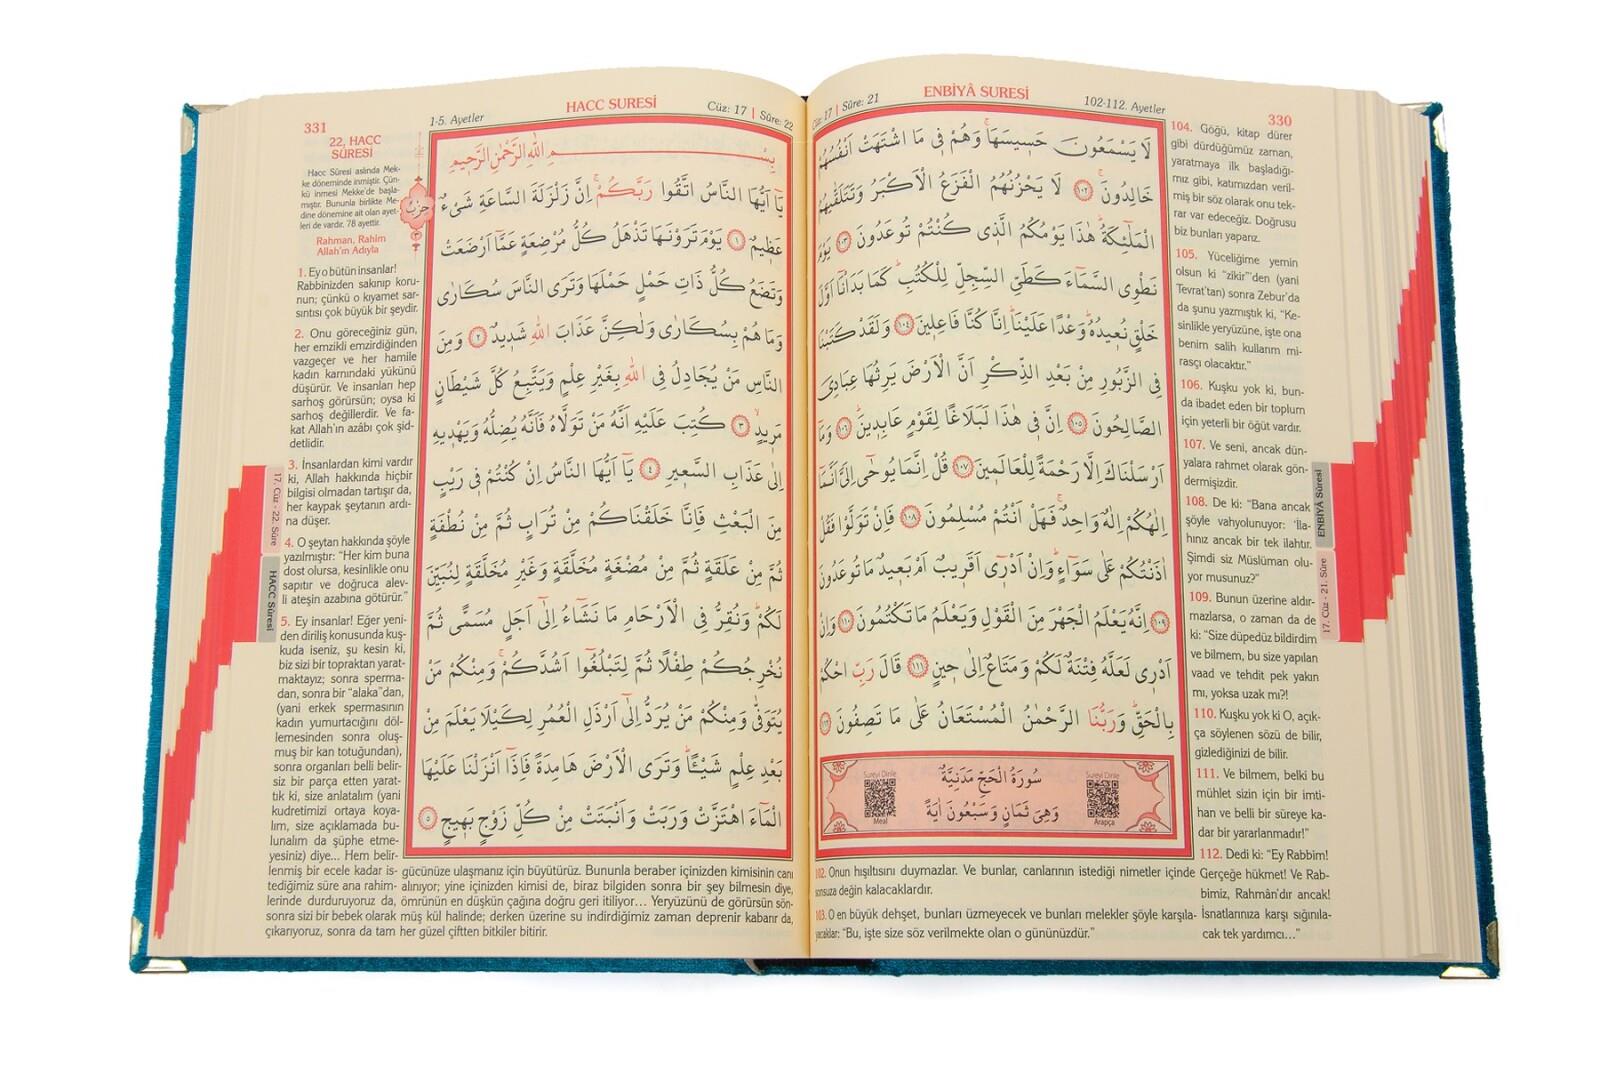 330
ENBİYÂ SURESİ
Cüz: 17 | Sûre: 21
102-112. Ayetler
لَا يَسْمَعُونَ حَسِيسَهَا وَهُمْ فِى مَا اشْتَهَتْ اَنْفُسُهُمْ
خَالِدُونَ ﴿١٠٢﴾ لَا يَحْزُنُهُمُ الْفَزَعُ الْاَكْبَرُ وَتَتَلَقّٰيهُمُ
الْمَلٰٓئِكَةُ هٰذَا يَوْمُكُمُ الَّذِى كُنْتُمْ تُوعَدُونَ ﴿١٠٣﴾ يَوْمَ
نَطْوِى السَّمَٓاءَ كَطَىِّ السِّجِلِّ لِلْكُتُبِ كَمَا بَدَاْنَٓا اَوَّلَ
خَلْقٍ نُعِيدُهُ وَعْدًا عَلَيْنَا اِنَّا كُنَّا فَاعِلِينَ ﴿١٠٤﴾ وَلَقَدْ كَتَبْنَا
فِى الزَّبُورِ مِنْ بَعْدِ الذِّكْرِ اَنَّ الْاَرْضَ يَرِثُهَا عِبَادِىَ
الصَّالِحُونَ ﴿١٠٥﴾ اِنَّ فِى هٰذَا لَبَلَاغًا لِقَوْمٍ عَابِدِينَ ﴿١٠٦﴾ وَمَٓا
اَرْسَلْنَاكَ اِلَّا رَحْمَةً لِلْعَالَمِينَ ﴿١٠٧﴾ قُلْ اِنَّمَا يُوحٰٓى اِلَىَّ اَنَّمَٓا
اِلٰهُكُمْ اِلٰهٌ وَاحِدٌ فَهَلْ اَنْتُمْ مُسْلِمُونَ ﴿١٠٨﴾ فَاِنْ تَوَلَّوْا فَقُلْ
اٰذَنْتُكُمْ عَلٰى سَوَٓاءٍ وَاِنْ اَدْرِٓى اَقَرِيبٌ اَمْ بَعِيدٌ مَا تُوعَدُونَ
﴿١٠٩﴾ اِنَّهُ يَعْلَمُ الْجَهْرَ مِنَ الْقَوْلِ وَيَعْلَمُ مَا تَكْتُمُونَ ﴿١١٠﴾ وَاِنْ
اَدْرِى لَعَلَّهُ فِتْنَةٌ لَكُمْ وَمَتَاعٌ اِلٰى حِينٍ ﴿١١١﴾ قَالَ رَبِّ احْكُمْ
بِالْحَقِّ وَرَبُّنَا الرَّحْمٰنُ الْمُسْتَعَانُ عَلٰى مَا تَصِفُونَ ﴿١١٢﴾
سُورَةُ الْحَجِّ مَدَنِيَّةٌ
وَهِىَ ثَمَانٍ وَسَبْعُونَ اٰيَةً
Sureyi Dinle
Meal
Sureyi Dinle
Arapça
102. Onun hışıltısını duymazlar. Ve bunlar, canlarının istediği nimetler içinde
sonsuza değin kalacaklardır.
103. O en büyük dehşet, bunları üzmeyecek ve bunları melekler şöyle karşıla-
yacaklar: “Bu, işte size söz verilmekte olan o gününüzdür.”
104. Göğü, kitap dürer
gibi dürdüğümüz zaman,
yaratmaya ilk başladığı-
mız gibi, katımızdan veril-
miş bir söz olarak onu tek-
rar var edeceğiz. Doğrusu
biz bunları yaparız.
105. Yüceliğime yemin
olsun ki “zikir”den (yani
Tevrat’tan) sonra Zebur’da
da şunu yazmıştık ki, “Ke-
sinlikle yeryüzüne, işte ona
benim salih kullarım mi-
rasçı olacaktır.”
106. Kuşku yok ki, bun-
da ibadet eden bir toplum
için yeterli bir öğüt vardır.
107. Ve seni, ancak dün-
yalara rahmet olarak gön-
dermişizdir.
108. De ki: “Bana ancak
şöyle vahyolunuyor: ‘İla-
hınız ancak bir tek ilahtır.
Şimdi siz Müslüman olu-
yor musunuz?”
109. Bunun üzerine aldır-
mazlarsa, o zaman da de
ki: “Size düpedüz bildirdim
ve bilmem, bu size yapılan
vaad ve tehdit pek yakın
mı, yoksa uzak mı?!
110. Kuşku yok ki O, açık-
ça söylenen sözü de bilir,
gizlediğinizi de bilir.
111. Ve bilmem, belki bu
mühlet sizin için bir imti-
han ve belli bir süreye ka-
dar bir yararlanmadır!”
112. Dedi ki: “Ey Rabbim!
Gerçeğe hükmet! Ve Rab-
bimiz, Rahmân’dır ancak!
İsnatlarınıza karşı sığınıla-
cak tek yardımcı...”
ENBİYÂ Sûresi
17. Cüz - 21. Sûre
331
HACC SURESİ
Cüz: 17 | Sûre: 22
1-5. Ayetler
بِسْمِ اللّٰهِ الرَّحْمٰنِ الرَّحِيمِ
يَٓا اَيُّهَا النَّاسُ اتَّقُوا رَبَّكُمْ اِنَّ زَلْزَلَةَ السَّاعَةِ شَىْءٌ
عَظِيمٌ ﴿١﴾ يَوْمَ تَرَوْنَهَا تَذْهَلُ كُلُّ مُرْضِعَةٍ عَمَّٓا اَرْضَعَتْ
وَتَضَعُ كُلُّ ذَاتِ حَمْلٍ حَمْلَهَا وَتَرَى النَّاسَ سُكَارٰى
وَمَا هُمْ بِسُكَارٰى وَلٰكِنَّ عَذَابَ اللّٰهِ شَدِيدٌ ﴿٢﴾ وَمِنَ
النَّاسِ مَنْ يُجَادِلُ فِى اللّٰهِ بِغَيْرِ عِلْمٍ وَيَتَّبِعُ كُلَّ شَيْطَانٍ
مَرِيدٍ ﴿٣﴾ كُتِبَ عَلَيْهِ اَنَّهُ مَنْ تَوَلَّاهُ فَاَنَّهُ يُضِلُّهُ وَيَهْدِيهِ
اِلٰى عَذَابِ السَّعِيرِ ﴿٤﴾ يَٓا اَيُّهَا النَّاسُ اِنْ كُنْتُمْ فِى رَيْبٍ
مِنَ الْبَعْثِ فَاِنَّا خَلَقْنَاكُمْ مِنْ تُرَابٍ ثُمَّ مِنْ نُطْفَةٍ
ثُمَّ مِنْ عَلَقَةٍ ثُمَّ مِنْ مُضْغَةٍ مُخَلَّقَةٍ وَغَيْرِ مُخَلَّقَةٍ لِنُبَيِّنَ
لَكُمْ وَنُقِرُّ فِى الْاَرْحَامِ مَا نَشَٓاءُ اِلٰٓى اَجَلٍ مُسَمًّى ثُمَّ
نُخْرِجُكُمْ طِفْلًا ثُمَّ لِتَبْلُغُٓوا اَشُدَّكُمْ وَمِنْكُمْ مَنْ
يُتَوَفّٰى وَمِنْكُمْ مَنْ يُرَدُّ اِلٰٓى اَرْذَلِ الْعُمُرِ لِكَيْلَا يَعْلَمَ مِنْ
بَعْدِ عِلْمٍ شَيْـًٔا وَتَرَى الْاَرْضَ هَامِدَةً فَاِذَٓا اَنْزَلْنَا عَلَيْهَا
الْمَٓاءَ اهْتَزَّتْ وَرَبَتْ وَاَنْبَتَتْ مِنْ كُلِّ زَوْجٍ بَهِيجٍ ﴿٥﴾
حزب
٣
22, HACC
SÛRESİ
Hacc Sûresi aslında Mek-
ke döneminde inmiştir. Çün-
kü inmesi Mekke’de başla-
mıştır. Bununla birlikte Me-
dine dönemine ait olan ayet-
leri de vardır. 78 ayettir.
Rahman, Rahim
Allah’ın Adıyla
1. Ey o bütün insanlar!
Rabbinizden sakınıp koru-
nun; çünkü o kıyamet sar-
sıntısı çok büyük bir şeydir.
2. Onu göreceğiniz gün,
her emzikli emzirdiğinden
vazgeçer ve her hamile
kadın karnındaki yükünü
düşürür. Ve insanları hep
sarhoş görürsün; oysa ki
sarhoş değillerdir. Ve fa-
kat Allah’ın azâbı çok şid-
detlidir.
3. İnsanlardan kimi vardır
ki, Allah hakkında hiçbir
bilgisi olmadan tartışır da,
her kaypak şeytanın ardı-
na düşer.
4. O şeytan hakkında şöyle
yazılmıştır: “Her kim buna
dost olursa, kesinlikle onu
sapıtır ve doğruca alev-
li ateşin azabına götürür.”
5. Ey insanlar! Eğer yeni-
den diriliş konusunda kuş-
kuda iseniz, şu kesin ki,
biz sizi bir topraktan yarat-
maktayız; sonra sperma-
dan, sonra bir “alaka”dan,
(yani erkek spermasının
kadın yumurtacığını döl-
lemesinden sonra oluş-
muş bir kan totuğundan),
sonra organları belli belir-
siz bir parça etten yarat-
tık ki, size anlatalım (yani
kudretimizi ortaya koya-
lım, size açıklamada bu-
lunalım da şüphe etme-
yesiniz) diye... Hem belir-
lenmiş bir ecele kadar is-
tediğimiz süre ana rahim-
lerinde durduruyoruz da,
sonra sizi bir bebek olarak
çıkarıyoruz, sonra da tam
gücünüze ulaşmanız için büyütürüz. Bununla beraber içinizden kimisinin canı
alınıyor; yine içinizden kimisi de, biraz bilgiden sonra bir şey bilmesin diye,
ömrünün en düşkün çağına doğru geri itiliyor... Yeryüzünü de görürsün sön-
müş kül halinde; derken üzerine su indirdiğimiz zaman deprenir kabarır da,
her güzel çiftten bitkiler bitirir.
17. Cüz - 22. Sûre
HACC Sûresi